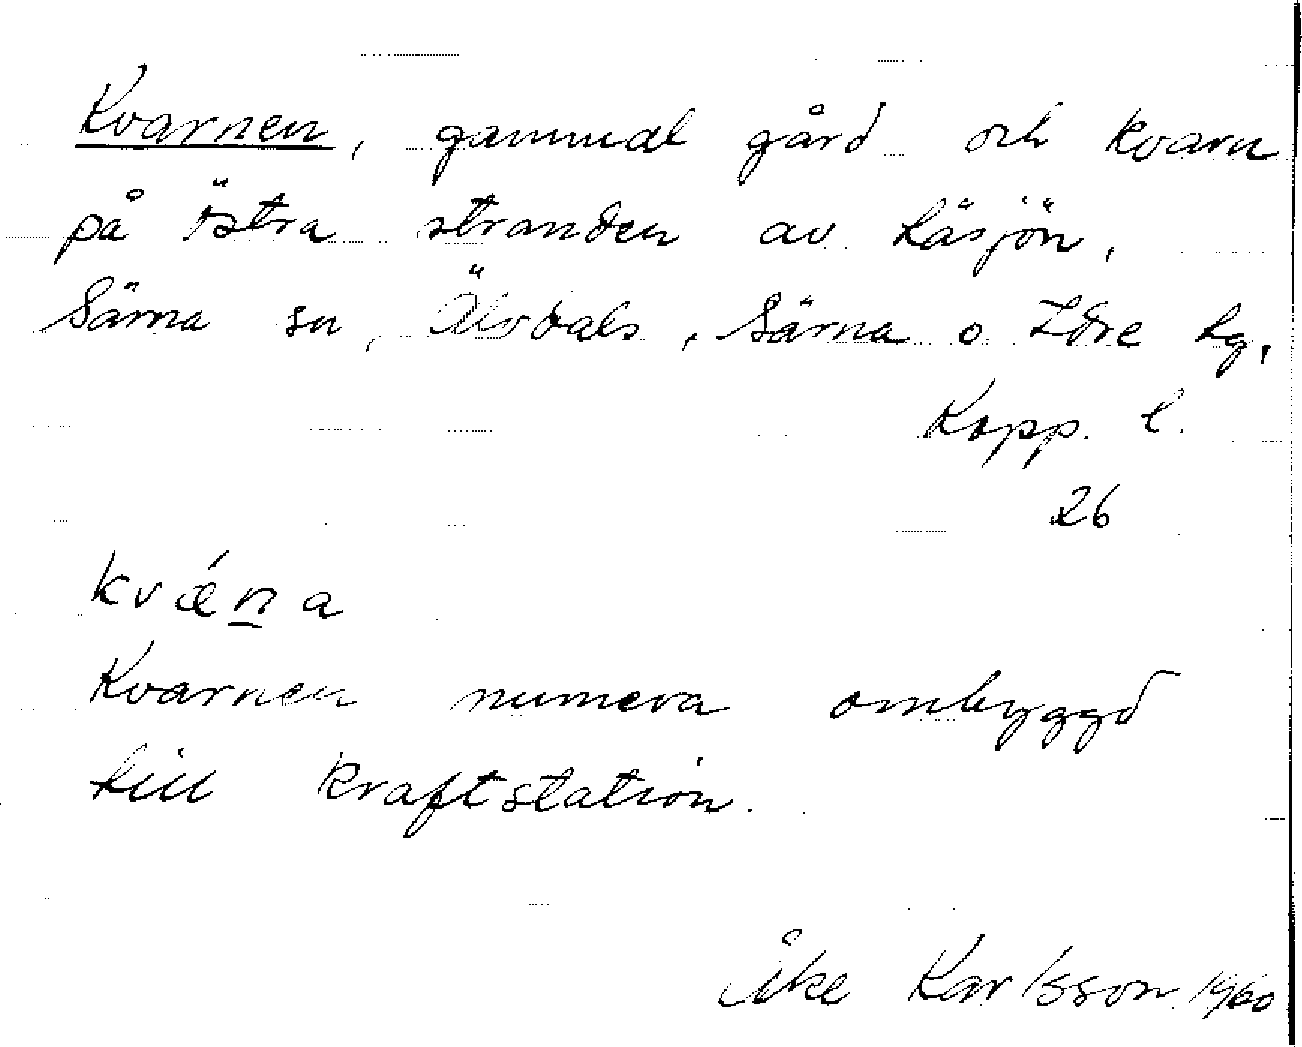 Kvarnen, gammal gård och kvarn
på östra stranden av Läsjön,
Särna sn, Älvdals, Särna o Idre tg,
Kopp. l.
26
kvǽn̲a
Kvarnen numera ombyggd
till kraftstation.
Åke Karlsson 1960